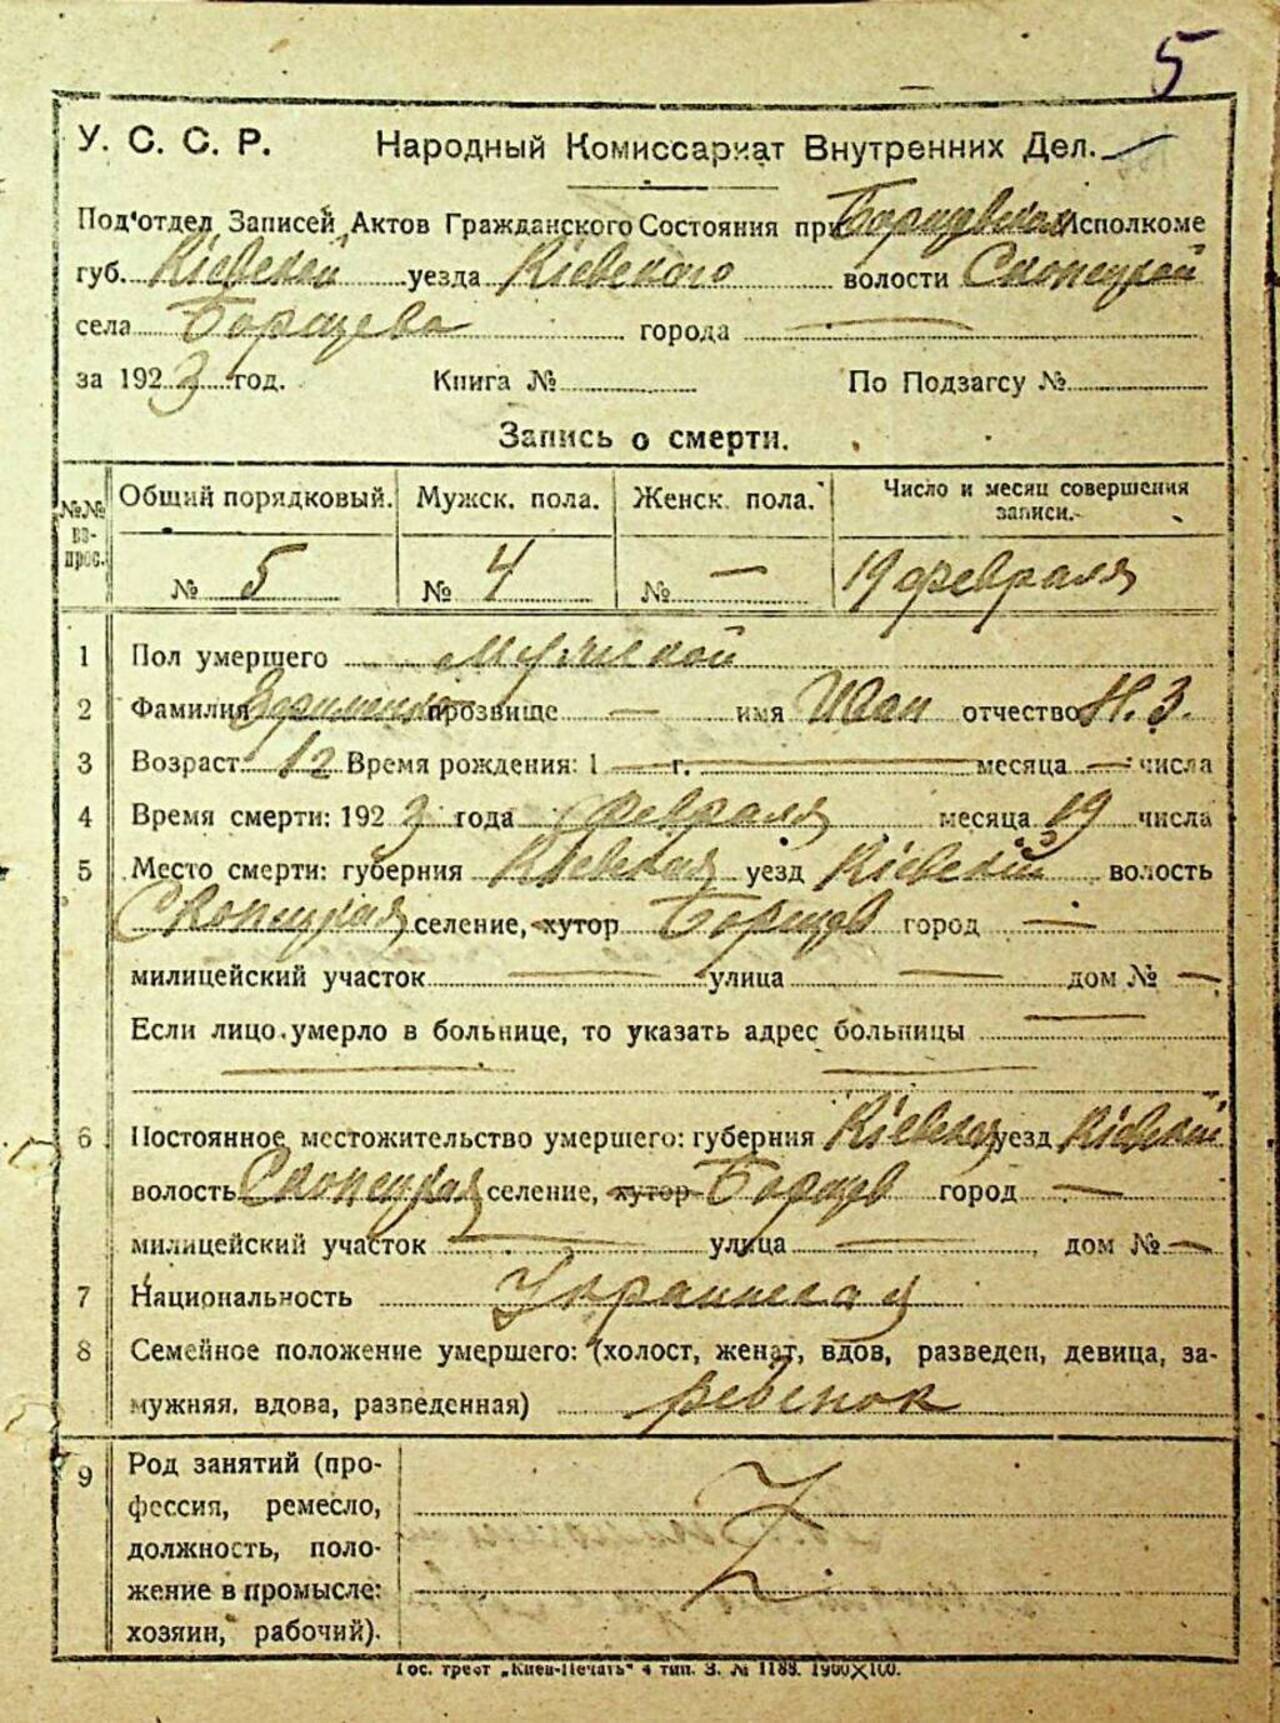 5
У. С. С. Р. Народный Комиссариат Внутренних Дел.
Под'отдел Записей Актов Гражданского Состояния при Исполкоме
губ. Кіевской уезда Кіевского волости Скопецкой
села Борщева города —
за 1923 год. Книга № По Подзагсу №
Запись о смерти.
№№ во-прос. Общий порядковый. Мужск. пола. Женск. пола. Число и месяц совершения записи.
№ 5 № 4 № — 19 февраля
1 Пол умершего Мужской
2 Фамилия прозвище — имя Иван отчество Н. З.
3 Возраст 12 Время рождения: 1 — г. — месяца — числа
4 Время смерти: 1923 года февраля месяца 19 числа
5 Место смерти: губерния Кіевская уезд Кіевский волость
Скопецкая селение, хутор Борщев город —
милицейский участок — улица — дом № —
Если лицо умерло в больнице, то указать адрес больницы —
— —
6 Постоянное местожительство умершего: губерния Кіевская уезд Кіевский
волость Скопецкая селение, хутор Борщев город —
милицейский участок — улица — дом № —
7 Национальность
8 Семейное положение умершего: (холост, женат, вдов, разведен, девица, за-
мужняя, вдова, разведенная) ребенок
9 Род занятий (про-
фессия, ремесло,
должность, поло-
жение в промысле:
хозяин, рабочий).
Гос. трест „Киев-Печать" 4 тип. З. № 1188. 1900×100.